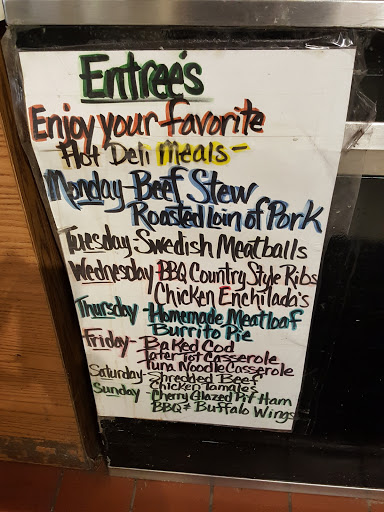 Entree's
Enjoy your favorite
- Hot Deli Meals -
Monday - Beef Stew
Roasted Loin of Pork
Tuesday - Swedish Meatballs
Wednesday BBQ Country Style Ribs
Chicken Enchilada's
Thursday - Homemade Meatloaf
Burrito Pie
Friday - Baked Cod
Tater Tot Casserole
Tuna Noodle Casserole
Saturday - Shredded Beef
Chicken Tamales
Sunday - Cherry Glazed Pit Ham
BBQ & Buffalo Wings